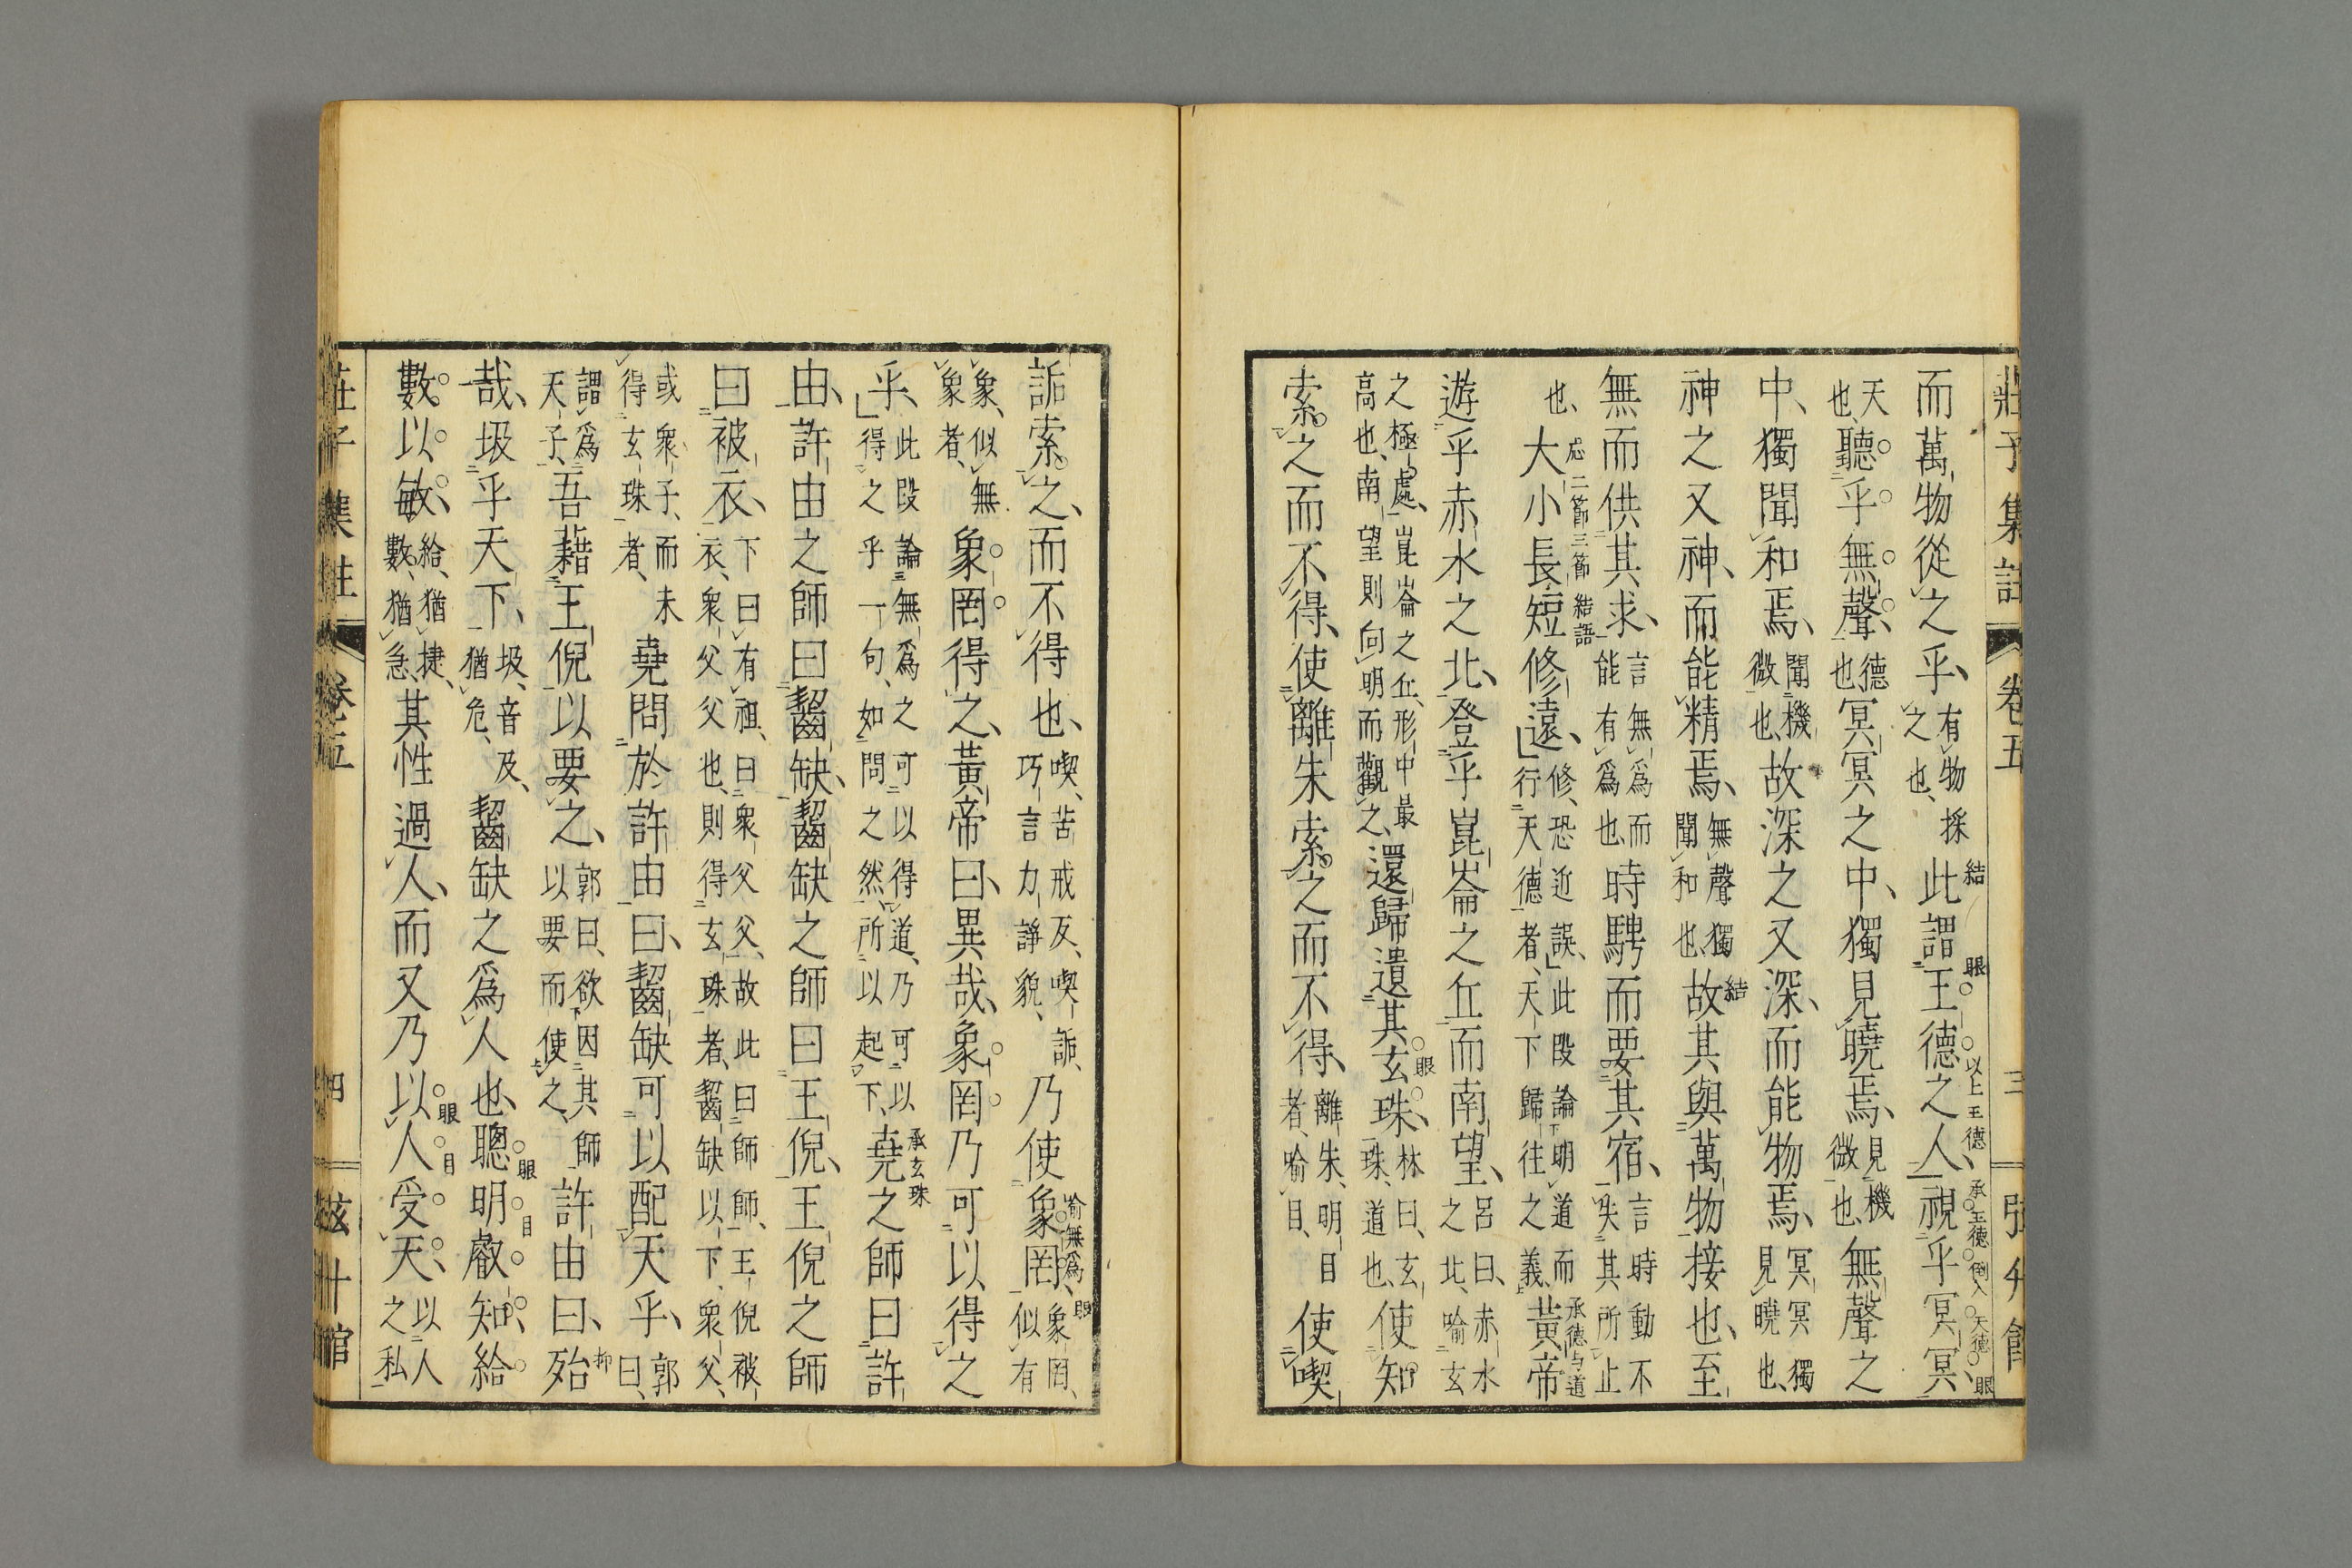 莊子集註 卷五 三
而萬物從之乎、有物採之也、此謂王德之人、視乎冥冥
天也、聽乎無聲、德也冥冥之中、獨見曉焉、見機微也、無聲之
中、獨聞和焉、聞機微也、故深之又深、而能物焉、冥冥獨見曉也、
神之又神、而能精焉、無聲獨聞和也、故其與萬物接也、至
無而供其求、言無爲而能有爲也、時騁而要其宿、言時動不失其所止
也、大小長短修遠、修、恐近誤、此段論明道而行天德者、天下歸往之義、黃帝
遊乎赤水之北、登乎崑崙之丘、而南望、呂曰、赤水之北、喻玄
之極處、崑崙之丘、形中最高也、南望則向明而觀之、還歸遺其玄珠、林曰、玄珠、道也、使知
索之而不得、使離朱索之而不得、離朱、明目者、喻目、使喫
詬索之、而不得也、喫、苦戒反、喫詬、巧言力諍貌、乃使象罔、象罔、似有
象、似無象者、象罔得之、黃帝曰、異哉、象罔乃可以得之
乎、此段論無爲之可以得道、乃可以得之乎一句、如問之然、所以起下、堯之師曰許
由、許由之師曰齧缺、齧缺之師曰王倪、王倪之師
曰被衣、下曰有祖、曰衆父父、故此曰師師、王倪被衣、衆父父也、則得玄珠者、齧缺以下、衆父、
或衆子、而未得玄珠者、堯問於許由曰、齧缺可以配天乎、郭曰、
謂爲天子、吾藉王倪以要之、郭曰、欲因其師以要而使之、許由曰、殆
哉、圾乎天下、圾、音及、猶危、齧缺之爲人也、聰明叡知、給
數以敏、給、猶捷、數、猶急、其性過人、而又乃以人受天、以人之私
莊子集註 卷五 四